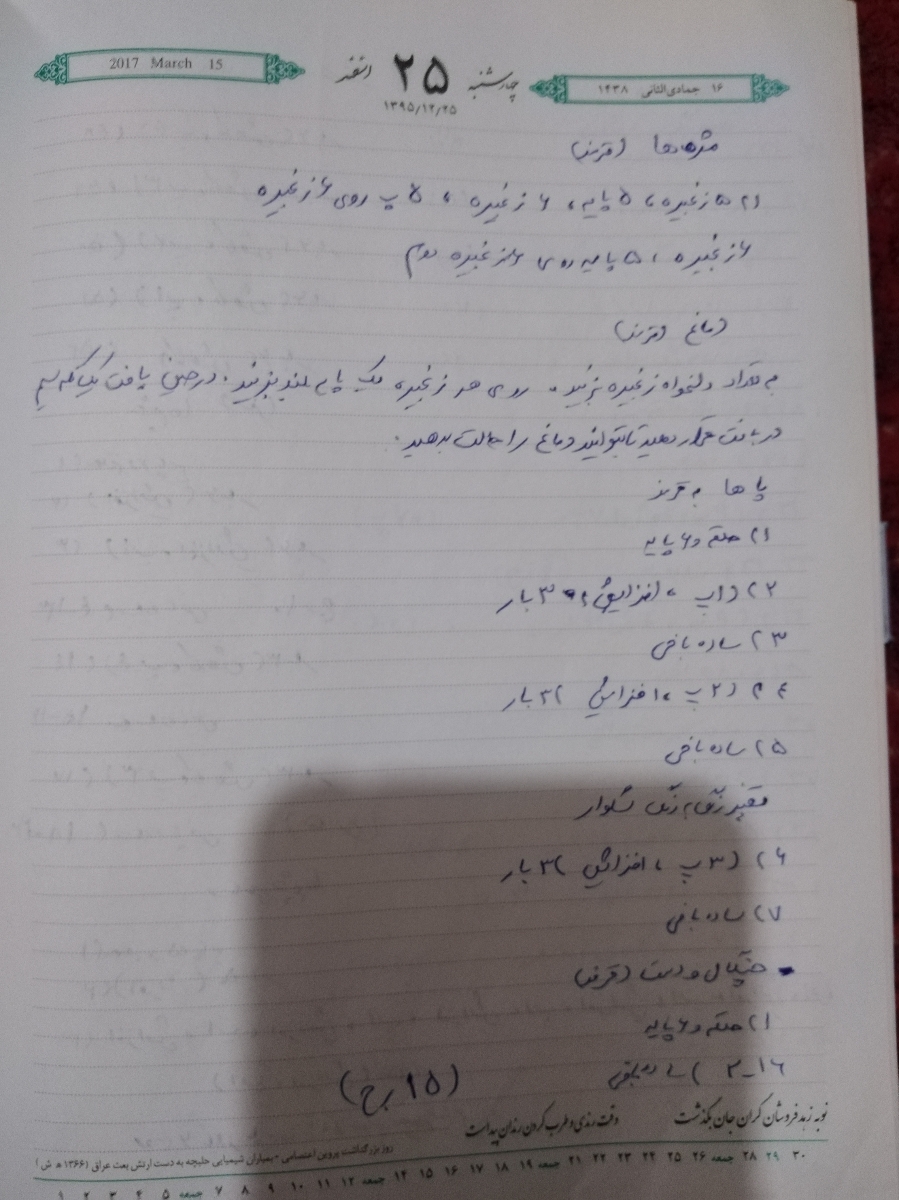 2017 March 15
چهارشنبه ۲۵ اسفند
۱۳۹۵/۱۲/۲۵
۱۶ جمادی‌الثانی ۱۴۳۸
مژه‌ها (قرمز)
۱) ۵ زنجیره، ۵ پایه، ۶ زنجیره، ۵ پ روی ۶ زنجیره
۶ زنجیره، ۵ پایه روی ۶ زنجیره دوم
دماغ (قرمز)
به تعداد دلخواه زنجیره بزنید. روی هر زنجیره یک پایه بلند بزنید. در حین بافت یک تکه سیم
در بافت قرار دهید تا بتوانید دماغ را حالت بدهید.
پا ها قرمز
۱) حلقه و ۶ پایه
۲) (۱ پ، افزایش) ۳ بار
۳) ساده بافی
۴) (۲ پ، افزایش) ۳ بار
۵) ساده بافی
تغییر رنگ، رنگ شلوار
۶) (۳ پ، افزایش) ۳ بار
۷) ساده بافی
چنگال و دست (قرمز)
۱) حلقه و ۶ پایه
۲-۱۶) ساده بافی
(۱۵ رج)
نوبه زهدفروشان گران جان بگذشت وقت رندی و طرب کردن رندان پیداست
روز بزرگداشت پروین اعتصامی - بمباران شیمیایی حلبچه به دست ارتش بعث عراق (۱۳۶۶ ه ش)
۱ ۲ ۳ ۴ ۵ جمعه ۷ ۸ ۹ ۱۰ ۱۱ جمعه ۱۳ ۱۴ ۱۵ ۱۶ ۱۷ ۱۸ جمعه ۲۰ ۲۱ ۲۲ ۲۳ ۲۴ ۲۵ جمعه ۲۸ ۲۹ ۳۰